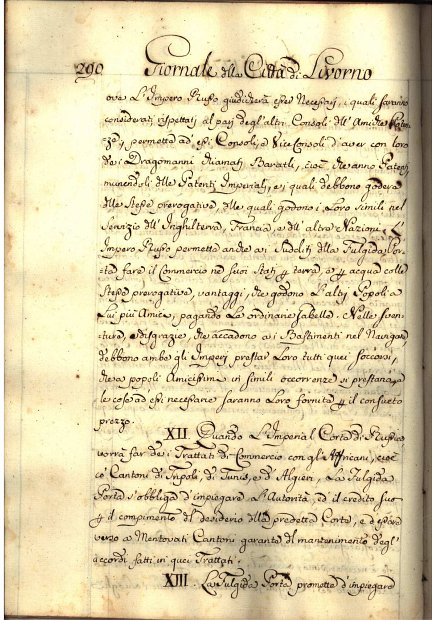 290 Giornale della Città di Livorno
ove L'Impero Russo giudicherà esser Necessarj, i quali saranno
considerati rispettati al pari degl'altri Consoli dell'Amiche
permetta ad essi Consoli, e Vice Consoli d'aver con loro
Dragomanni chiamati Baratli, cioè che anno Patenti
munendoli delle Patenti Imperiali, e i quali debbono godere
delle stesse prerogative, delle quali godono i Loro Simili nel
Servizio dell'Inghilterra, Francia, e dell'altre Nazioni. L'
Impero Russo permetta anche ai Sudditi della Fulgida Por-
ta fare il Commercio ne suoi Stati p terra, e p acqua colle
stesse prerogative, vantaggi, che godono L'altri Popoli a
Lui più Amici, pagando Le ordinarie Gabelle. Nelle sven-
ture, e disgrazie, che accadono ai Bastimenti nel Navigare
debbono ambo gli Imperj prestar Loro tutti quei soccorsi,
che a popoli Amicissimi in simili occorrenze si prestano, e
le cose ad essi necessarie saranno Loro fornite p il consueto
prezzo.
XII Quando L'Imperial Corte di Russia
vorrà far de i Trattati di Commercio con gl'Affricani, cioè
co' Cantoni di Tripoli, di Tunis, e d'Algieri, La Fulgida
Porta s'obbliga d'impiegare L'Autorità, ed il credito suo
p il compimento del desiderio della predetta Corte, e d'essere
verso a Mentovati Cantoni garante del mantenimento degl'
accordi fatti in quei Trattati.
XIII. La Fulgida Porta promette d'impiegare